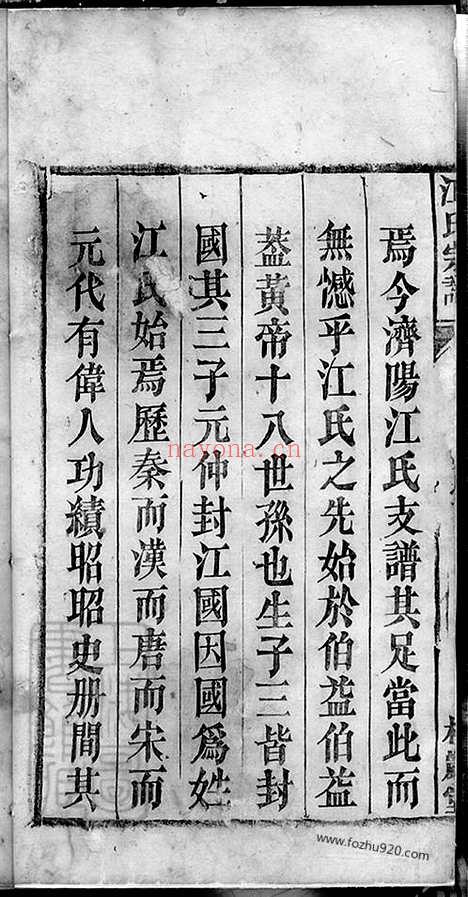 江氏宗譜
焉今濟陽江氏支譜其足當此而
無憾乎江氏之先始於伯益伯益
葢黃帝十八世孫也生子三皆封
國其三子元仲封江國因國爲姓
江氏始焉歷秦而漢而唐而宋而
元代有偉人功績昭昭史册間其
nayona.cn
www.fozhu920.com